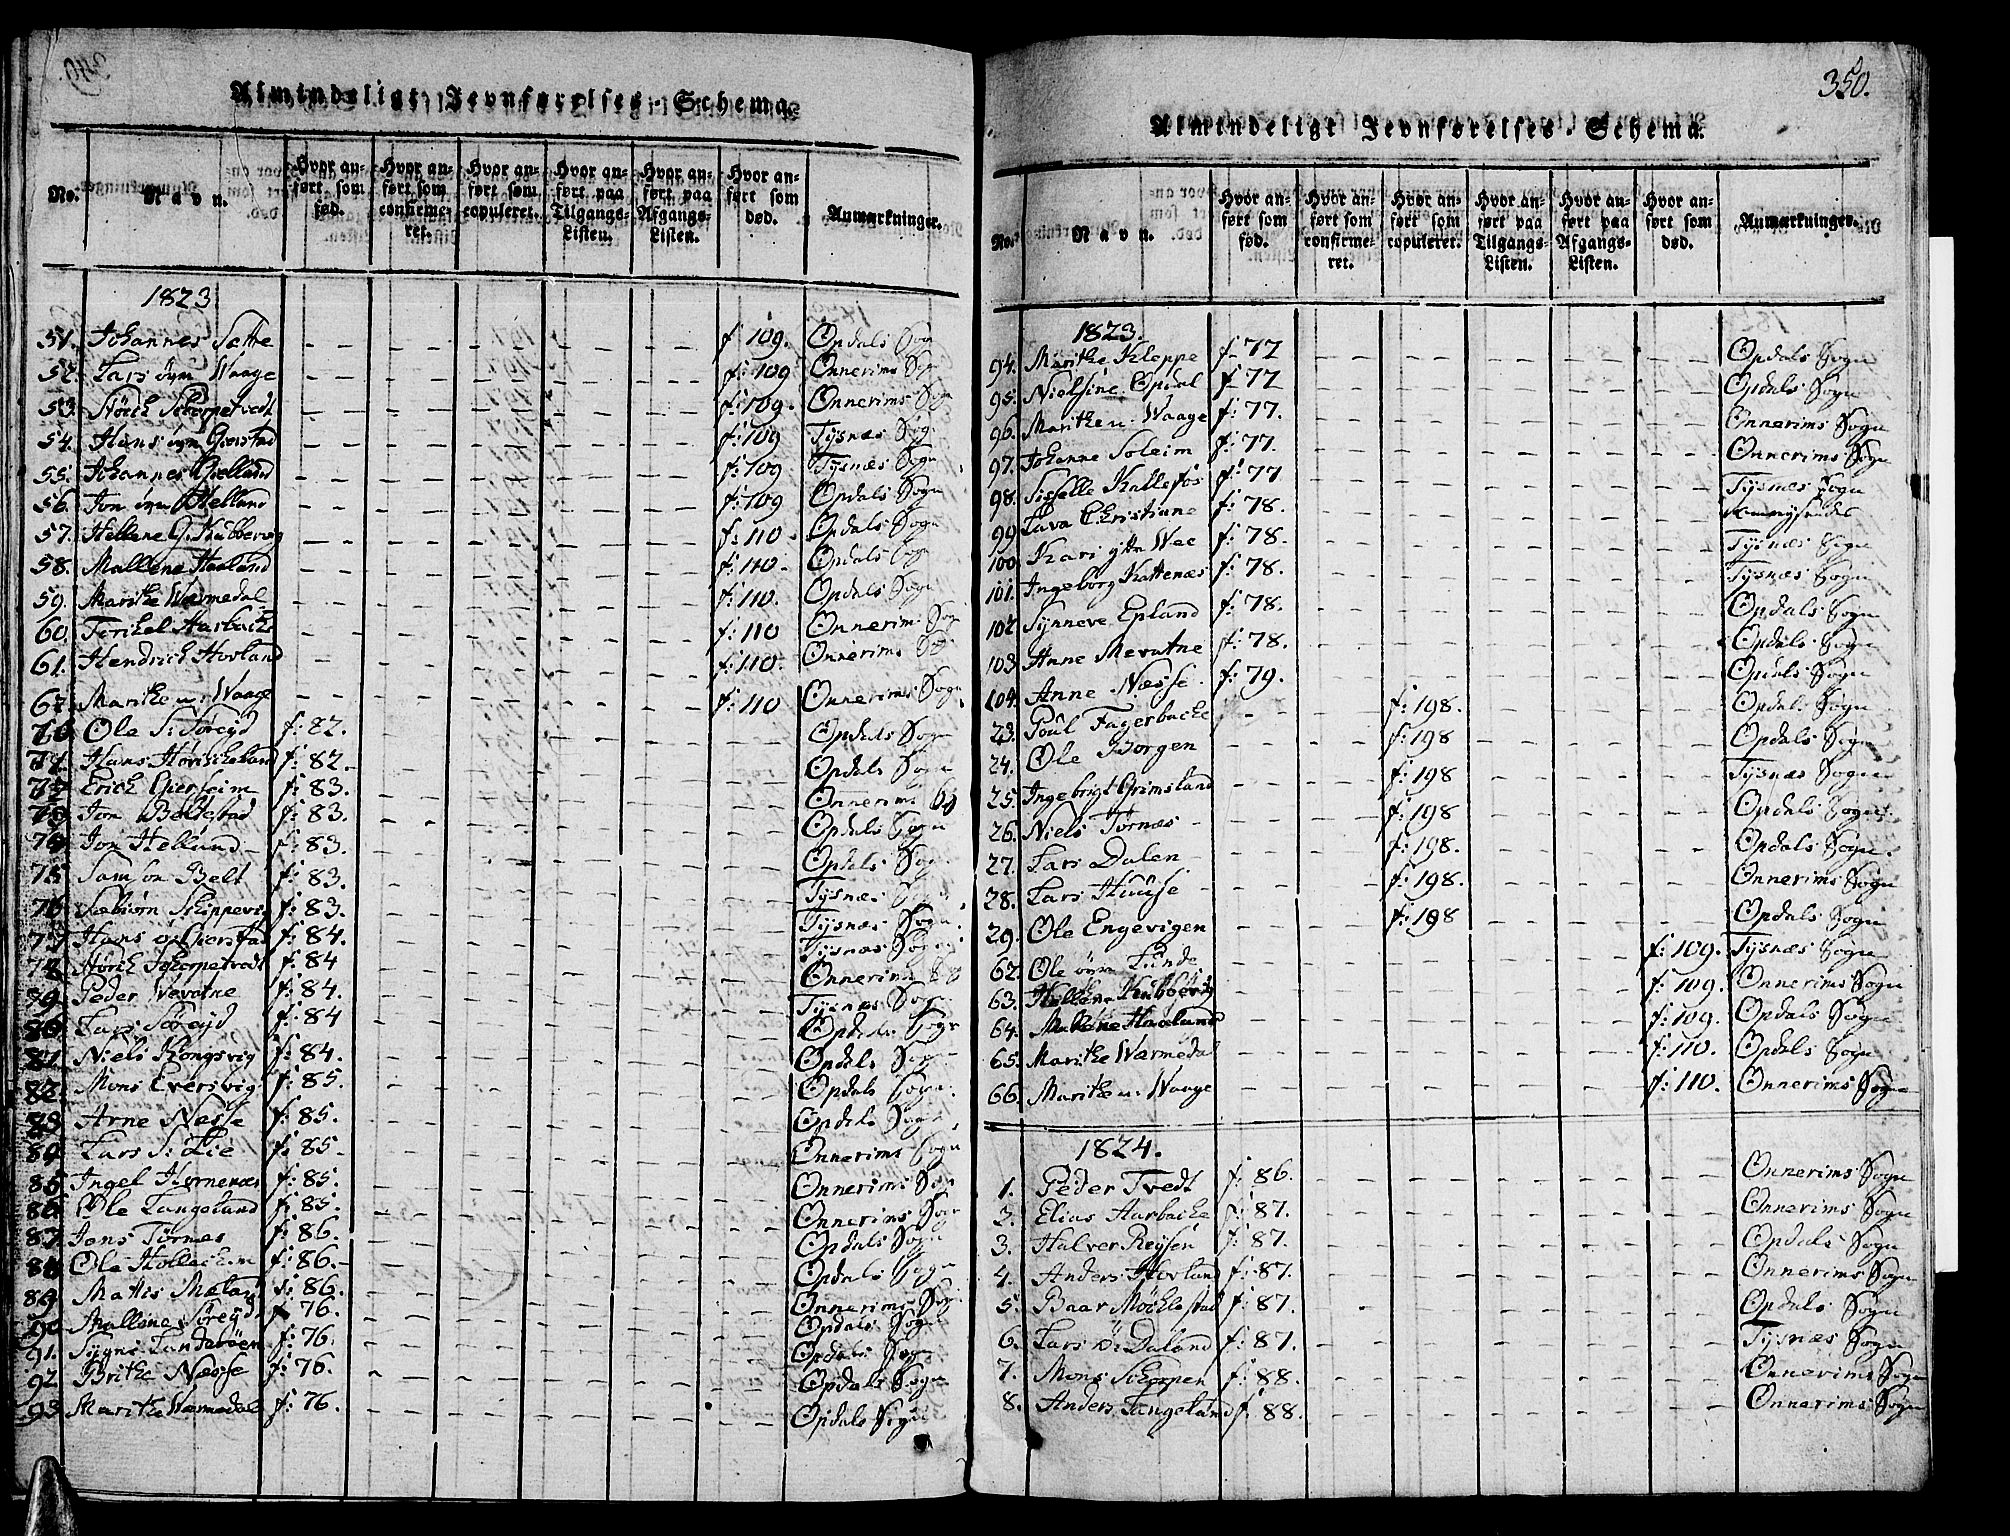 Almindeligt Jevnførelses-Schema.
No.
Navn.
Hvor anført som fød.
Hvor anført som confirmeret.
Hvor anført som copuleret.
Hvor anført paa Tilgangs-Listen.
Hvor anført paa Afgangs-Listen.
Hvor anført som død.
Anmærkninger.
1823
51. Johannes Sætte f 109. Opdals Sogn
52. Lars øvn Waage f: 109 Onnerims Sogn
53. f: 109. Onnerims Sogn
54. Hans øvn Gierstad f: 109 Tysnæs Sogn
55. Johannes Gielland f: 109 Tysnæs Sogn
56. Jon øvn Helland f: 109 Opdals Sogn
57. Hellene G. Kubbervig f: 110 Opdals Sogn
58. Mallene Haaland f: 110. Opdals Sogn
59. Marithe Wærmedal f: 110. Opdals Sogn
60. Torkel Aarbacke f: 110 Onnerims Sogn
61. Hendrich Hovland f: 110. Onnerims
67. Marithe u: Waage f: 110 Onnerims Sogn
70 Ole S: Søreyd f: 82. Opdals Sogn
71. Hans f: 82. Opdals Sogn
72 Erich Gierseim f: 83. Onnerims
73 Jon Beltestad f: 83. Opdals Sogn
74 Jon Helland f: 83. Opdals Sogn
75 Samson Belt f: 83. Tysnæs Sogn
76 Sæbiørn Skippervig f: 83. Tysnæs Sogn
77 Hans ø Gierstad f: 84. Tysnæs Sogn
78 f: 84 Onnerims
79 Peder Wevatne f: 84. Tysnæs Sogn
80. Lars Søreyd f: 84 Opdals Sogn
81. Niels Kongsvig f: 84. Opdals Sogn
82. Mons Eversvig f: 85. Opdals Sogn
83 Arne Næsse f: 85. Opdals Sogn
84 Lars S: Lie f: 85. Onnerims Sogn
85 Ingel Hornenæs f: 85. Onnerims Sogn
86 Ole Langeland f: 85. Onnerims Sogn
87. Jens Tørnes f: 86. Opdals Sogn
88 Ole f: 86. Opdals Sogn
89. Mattis f: 86. Onnerims Sogn
90 Mallene Søreyd f 76. Opdals Sogn
91. f: 76. Opdals Sogn
92 Brithe Næsse f: 76. Opdals Sogn
93 Marithe Wærmedal f: 76. Opdals Sogn
350.
Almindeligt Jevnførelses-Schema.
No.
Navn.
Hvor anført som fød.
Hvor anført som confirmeret.
Hvor anført som copuleret.
Hvor anført paa Tilgangs-Listen.
Hvor anført paa Afgangs-Listen.
Hvor anført som død.
Anmærkninger.
1823
94. Marithe Kleppe f 77 Opdals Sogn
95. Nielsine Opdal f 77 Opdals Sogn
96. Marithe u: Waage f: 77. Onnerims Sogn
97. Johanne Soleim f: 77. Onnerims Sogn
98. Siselle Kattefos f: 77 Tysnæs Sogn
99 Lava Christiane f: 78.
100. Kari Wee f: 78. Tysnæs Sogn
101. Ingeborg Kattenæs f: 78. Tysnæs Sogn
102 Synneve Epland f: 78. Opdals Sogn
103 Anne Mevatne f: 78. Opdals Sogn
104. Anne Næsse f: 79. Opdals Sogn
23. Poul Fagerbacke f: 198. Opdals Sogn
24. Ole Borgen f: 198 Opdals Sogn
25. Ingebrigt Grimsland f: 198 Tysnæs Sogn
26. Niels Tørnæs f: 198 Opdals Sogn
27. Lars Dalen f: 198. Opdals Sogn
28. Lars Huuse f: 198. Onnerims Sogn
29. Ole Engevigen f: 198 Opdals Sogn
62. Ole øvn Lunde f: 109. Tysnæs Sogn
63. Hellene Kubbervig f: 109. Onnerims Sogn
64. Mallene Haaland f: 109. Opdals Sogn
65. Marithe Wærmedal f: 110. Opdals Sogn
66. Marithe u: Waage f: 110. Onnerims Sogn
1824.
1. Peder Tvedt f: 86. Onnerims Sogn
2. Elias Aarbacke f: 87. Onnerims Sogn
3. Halver Reysen f: 87. Opdals Sogn
4. Anders Hovland f: 87. Onnerims Sogn
5. Baar Møchlestad f: 87. Opdals Sogn
6. Lars Ø: Daland f: 87. Tysnæs Sogn
7. Mons f: 88. Onnerims Sogn
8. Anders Langeland f 88. Onnerims Sogn